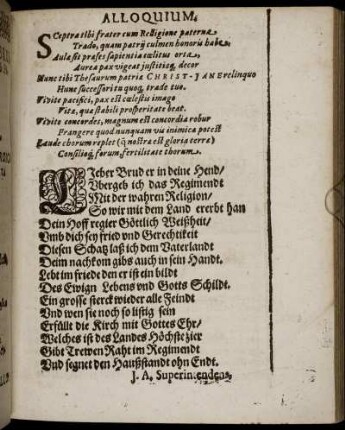 ALLOQUIUM.
SCeptra tibi frater cum Relligione paterna
Trado, quam patrij culmen honoris habe,
Aula sit præses sapientia cœlitus orta,
Aurea pax vigeat justitiæq́ decor
Hunc tibi Thesaurum patriæ CHRIST-JANE relinquo
Hunc successori tu quoq, trade tuo.
Vivite pacifici, pax est cœlestis imago
Vitæ, quæ stabili prosperitate beat.
Vivite concordes, magnum est concordia robur
Frangere quod nunquam vis inimica potest
Laude chorum replet (q̀ nostra est gloria terræ)
Consilioq́, forum, fertilitate thorum.
LIeber Brud er in deine Hend/
Vbergeb ich das Regimendt
Mit der wahren Religion/
So wir mit dem Land ererbt han
Dein Hoff regier Göttlich Weißheit/
Vmb dich sey fried vnd Gerechtikeit
Diesen Schatz laß ich dem Vaterlandt
Deim nachkom gibs auch in sein Handt.
Lebt im friede den er ist ein bildt
Des Ewign Lebens vnd Gotts Schildt.
Ein grosse sterck wieder alle Feindt
Vnd wen sie noch so listig sein
Erfüllt die Kirch mit Gottes Ehr/
Welches ist des Landes Höchste zier
Gibt Trewen Raht im Regimendt
Vnd segnet den Haußstandt ohn Endt.
J. A. Superintendens.